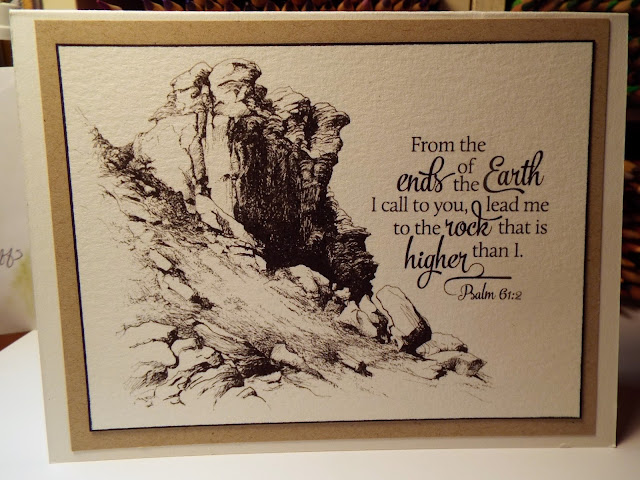 From the
ends of the Earth
I call to you, lead me
to the rock that is
higher than I.
Psalm 61:2